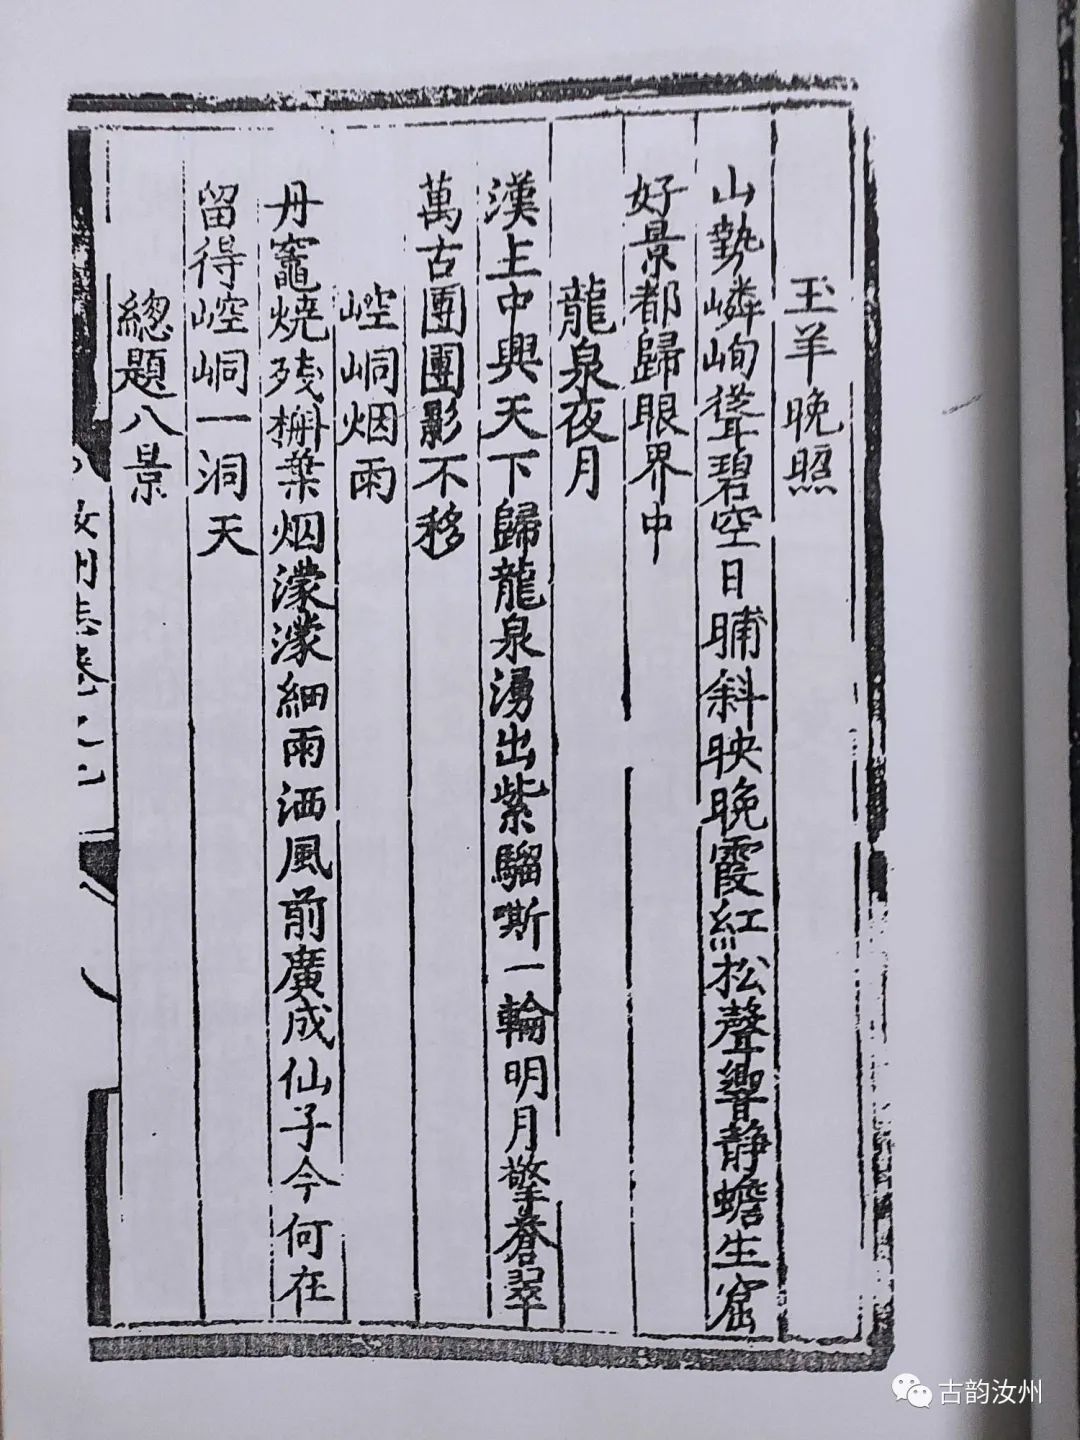 玉羊晚照
山勢嶙峋聳碧空日晡斜映晚霞紅松聲響静蟾生窟
好景都歸眼界中
龍泉夜月
漢上中興天下歸龍泉湧出紫騮嘶一輪明月擎蒼翠
萬古團團影不移
崆峒烟雨
丹竈燒残槲葉烟濛濛細雨洒風前廣成仙子今何在
留得崆峒一洞天
總題八景
汝州志卷之七
古韵汝州